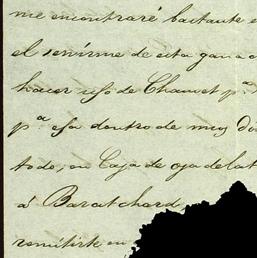 me encontraré bastante
el venirme de esta gana
hacer uso de Chauvet pª.
pª esa dentro de muy
todo, en Caja de oja de lat
á Barat chard
remitirte en